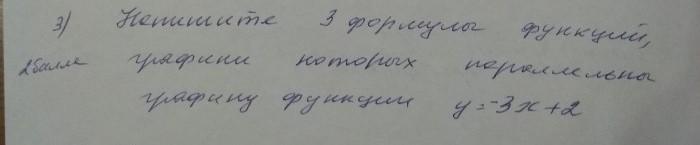 3) Напишите 3 формулы функций,
2балла графики которых параллельны
графику функции y=-3x+2